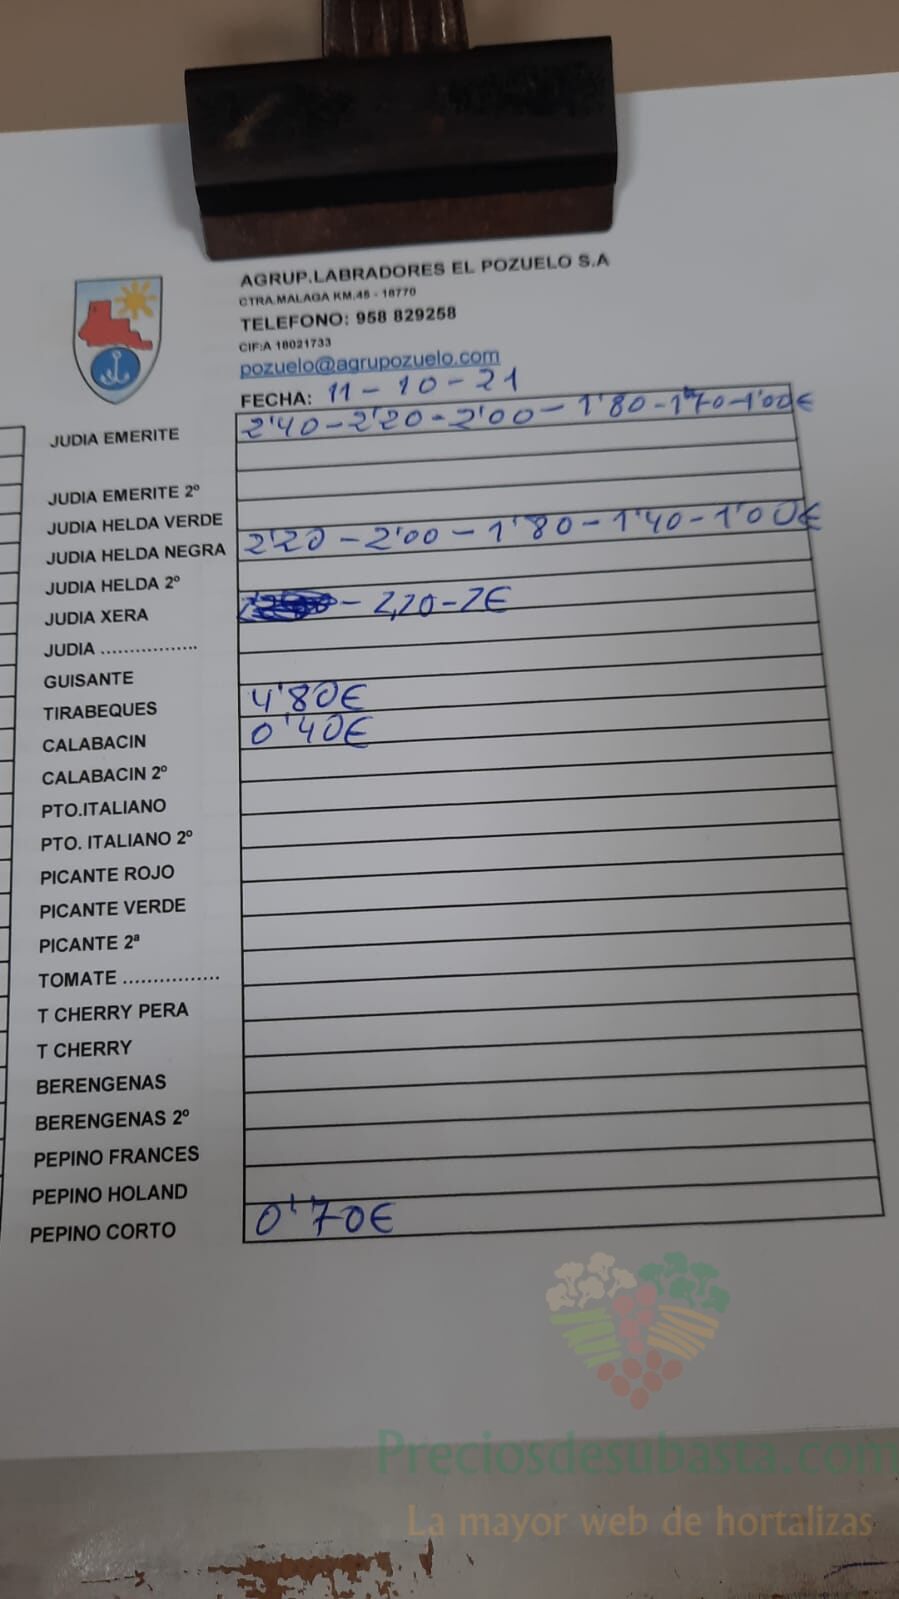 AGRUP.LABRADORES EL POZUELO S.A
CTRA.MALAGA KM.45 - 18770
TELEFONO: 958 829258
CIF:A 18021733
pozuelo@agrupozuelo.com
FECHA: 11-10-21
JUDIA EMERITE 2'40-2'20-2'00-1'80-1'70-1'00€
JUDIA EMERITE 2º
JUDIA HELDA VERDE
JUDIA HELDA NEGRA 2'20-2'00-1'80-1'40-1'00€
JUDIA HELDA 2º
JUDIA XERA - 2,20-2€
JUDIA .................
GUISANTE
TIRABEQUES 4'80€
CALABACIN 0'40€
CALABACIN 2º
PTO.ITALIANO
PTO. ITALIANO 2º
PICANTE ROJO
PICANTE VERDE
PICANTE 2ª
TOMATE ................
T CHERRY PERA
T CHERRY
BERENGENAS
BERENGENAS 2º
PEPINO FRANCES
PEPINO HOLAND
PEPINO CORTO 0'70€
Preciosdesubasta.com
La mayor web de hortalizas